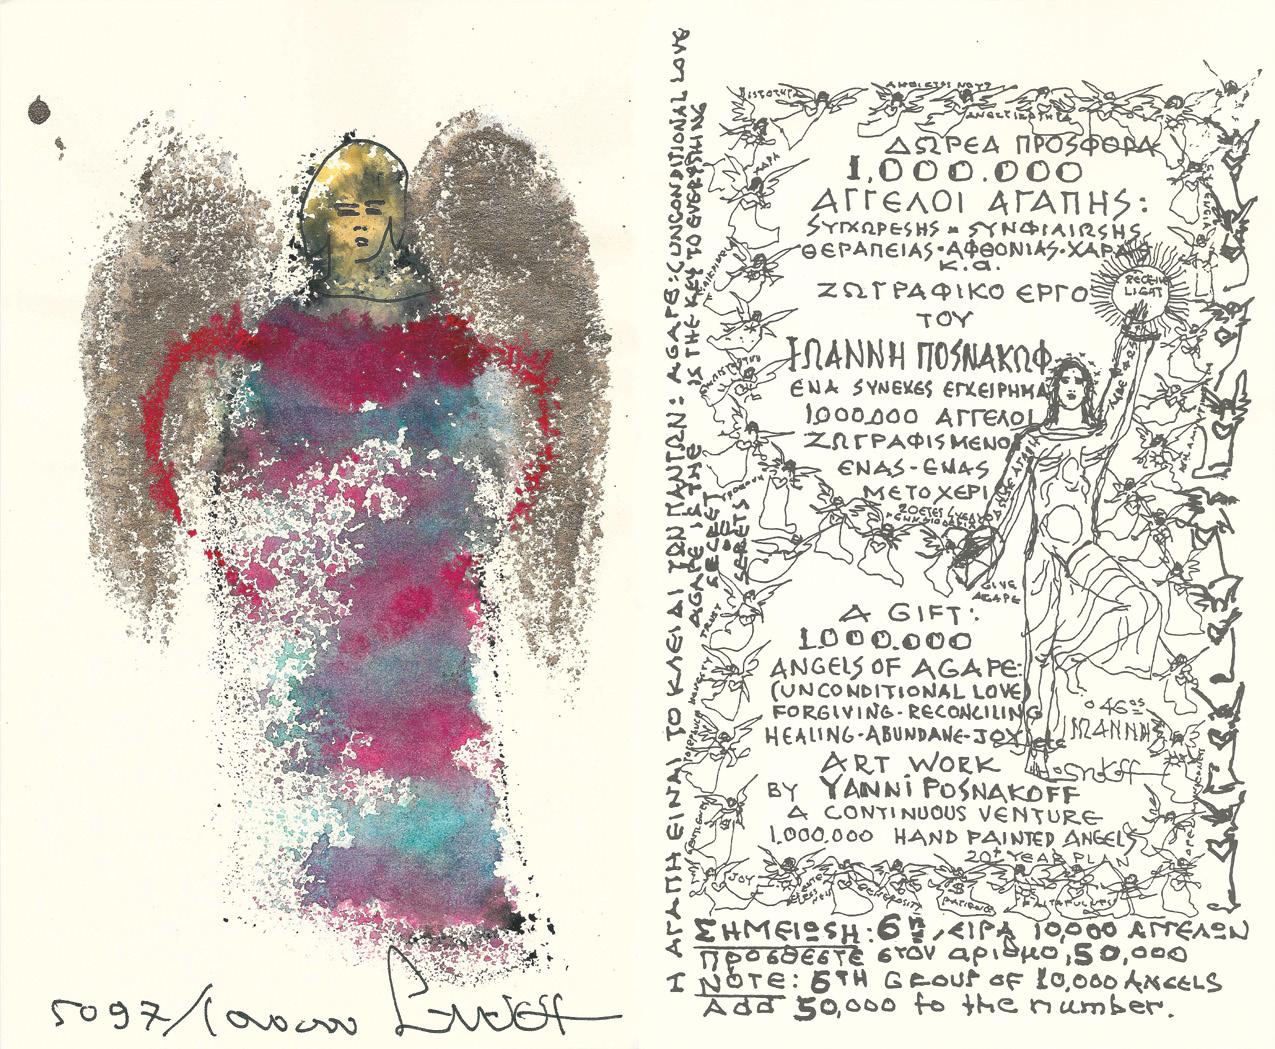 5097/1000000
Η ΑΓΑΠΗ ΕΙΝΑΙ ΤΟ ΚΛΕΙΔΙ ΤΩΝ ΠΑΝΤΩΝ: AGAPE:(UNCONDITIONAL LOVE
IS THE KEY TO EVERYTHING
AGAPE IS THE
SECRET
OF
SECRETS
ΔΩΡΕΑ ΠΡΟΣΦΟΡΑ
1,000.000
ΑΓΓΕΛΟΙ ΑΓΑΠΗΣ:
ΣΥΓΧΩΡΕΣΗΣ - ΣΥΝΦΙΛΙΩΣΗΣ
ΘΕΡΑΠΕΙΑΣ·ΑΦΘΟΝΙΑΣ·ΧΑΡΑΣ
κ.α.
ΖΩΓΡΑΦΙΚΟ ΕΡΓΟ
ΤΟΥ
ΙΩΑΝΝΗ ΠΟΣΝΑΚΩΦ
ΕΝΑ ΣΥΝΕΧΕΣ ΕΓΧΕΙΡΗΜΑ
1000.000 ΑΓΓΕΛΟΙ
ΖΩΓΡΑΦΙΣΜΕΝΟΙ
ΕΝΑΣ-ΕΝΑΣ
ΜΕ ΤΟ ΧΕΡΙ
RECEIVE
LIGHT
GIVE
AGAPE
A GIFT:
1.000.000
ANGELS OF AGAPE:
(UNCONDITIONAL LOVE)
FORGIVING-RECONCILING
HEALING-ABUNDANE-JOY etc
ART WORK
BY YANNI POSNAKOFF
A CONTINUOUS VENTURE
1.000.000 HAND PAINTED ANGELS
20+ YEAR PLAN
ΙΩΑΝΝΗΣ
JOY
GENEROSITY
PATIENCE
ΣΗΜΕΙΩΣΗ: 6η ΣΕΙΡΑ 10,000 ΑΓΓΕΛΩΝ
ΠΡΟΣΘΕΣΤΕ στον αριθμο, 50,000
NOTE: 6TH GROUP OF 10,000 ANGELS
Add 50,000 to the number.